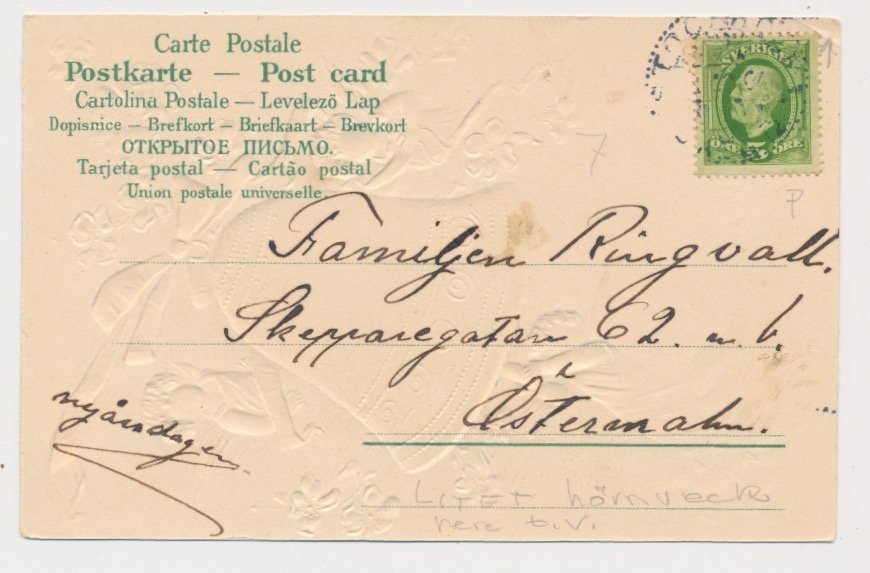 Carte Postale
Postkarte — Post card
Cartolina Postale — Levelező Lap
Dopisnice — Brefkort — Briefkaart — Brevkort
ОТКРЫТОЕ ПИСЬМО.
Tarjeta postal — Cartão postal
Union postale universelle.
SVERIGE
ÖRE 5 ÖRE
7
P
Familjen Ringvall.
Skepparegatan 62. n. b.
Östermalm.
nyårsdagen
LITET hörnveck
nere t.v.